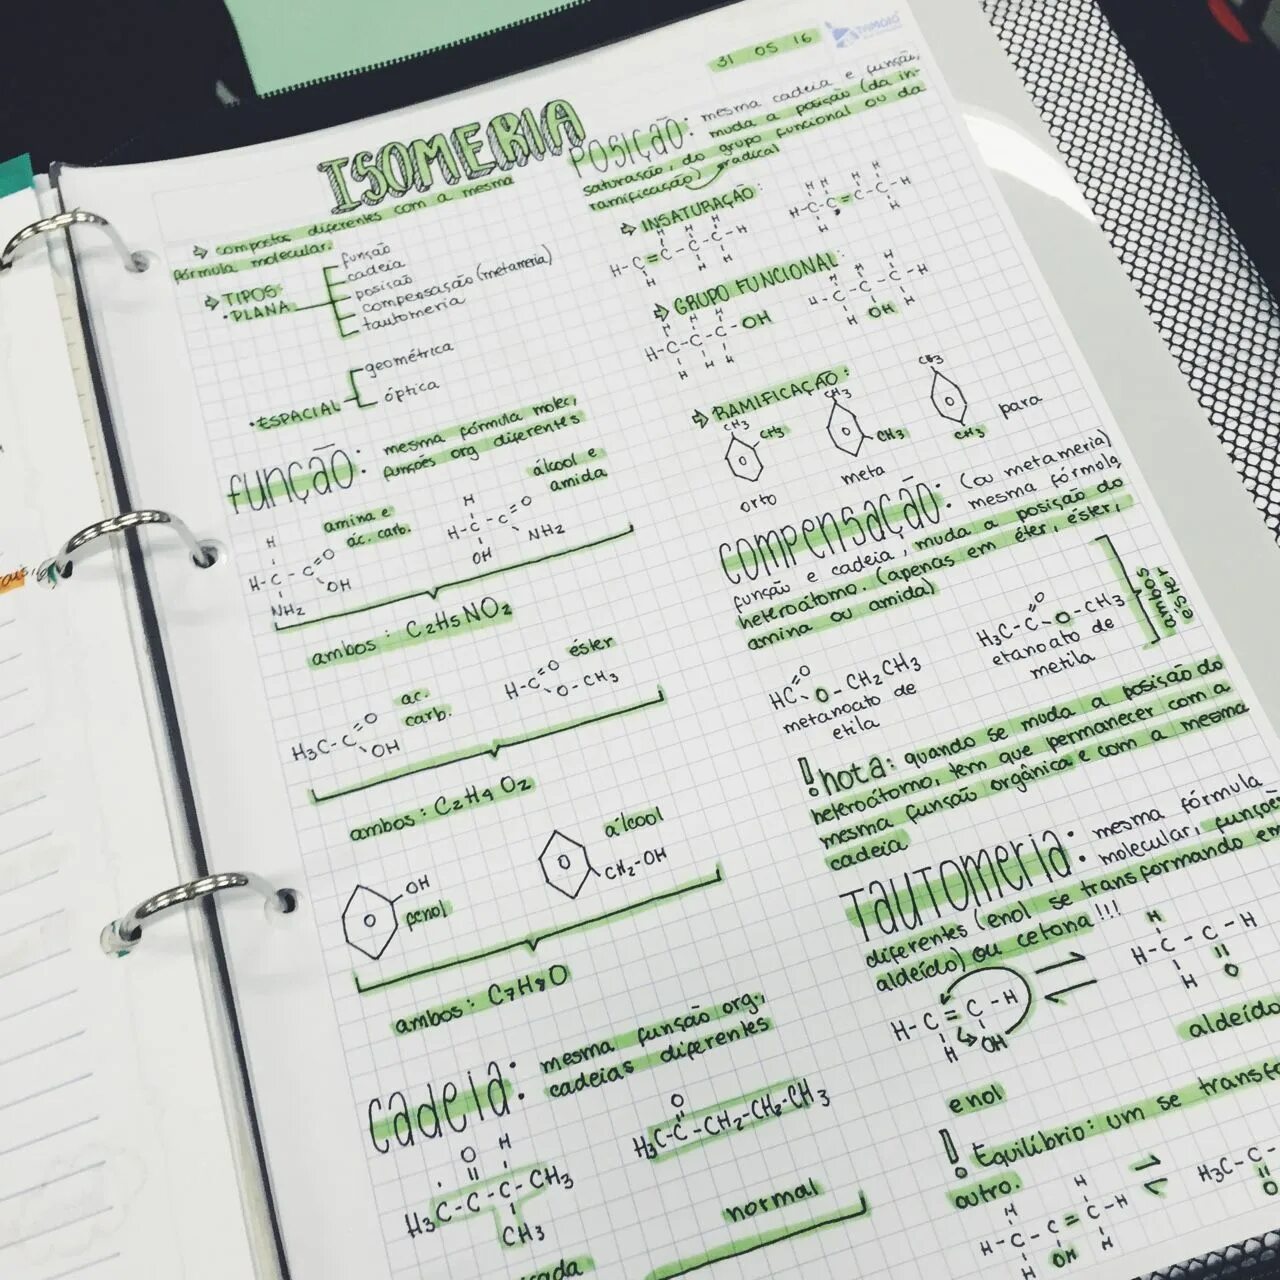 TAMOIO
31 05 16
ISOMERIA
→ compostos diferentes com a mesma
fórmula molecular.
→ TIPOS:
• PLANA
função
cadeia
posição
compensação (metameria)
tautomeria
• ESPACIAL
geométrica
óptica
função: mesma fórmula molec,
funções org diferentes
amina e
ác. carb.
H
H-C-C=O
OH
NH2
álcool e
amida
H
H-C-C=O
NH2
OH
ambos: C2H5NO2
ac.
carb.
H3C-C=O
OH
éster
H-C=O
O-CH3
ambos: C2H4O2
OH
fenol
álcool
CH2-OH
ambos: C7H8O
cadeia: mesma função org,
cadeias diferentes
O H
H3C-C-C-CH3
CH3
O
H3C-C-CH2-CH2-CH3
normal
POSIÇÃO: mesma cadeia e função,
muda a posição (da in-
saturação, do grupo funcional ou da
ramificação) radical
→ INSATURAÇÃO:
H H H
H-C=C-C-C-H
H H
H H H H
H-C-C=C-C-H
H H
→ GRUPO FUNCIONAL:
H H H
H-C-C-C-OH
H H H
H H H
H-C-C-C-H
H OH H
→ RAMIFICAÇÃO:
CH3
CH3
orto
CH3
CH3
meta
CH3
CH3
para
compensação: (ou metameria)
mesma fórmula
função e cadeia, muda a posição do
heteroátomo. (apenas em éter, éster,
amina ou amida)
HC=O
O-CH2CH3
metanoato de
etila
O
H3C-C-O-CH3
etanoato de
metila
ambos
ésteres
! nota: quando se muda a posição do
heteroátomo, tem que permanecer com a
mesma função orgânica e com a mesma
cadeia
TAUTOMERIA: mesma fórmula
molecular, funções
diferentes (enol se transformando em
aldeído) ou cetona!!!
H-C=C-H
H OH
enol
H
H-C-C-H
H O
aldeído
! Equilíbrio: um se transfo
outro.
H H
H-C-C=C-H
H OH H
H3C-C-
O